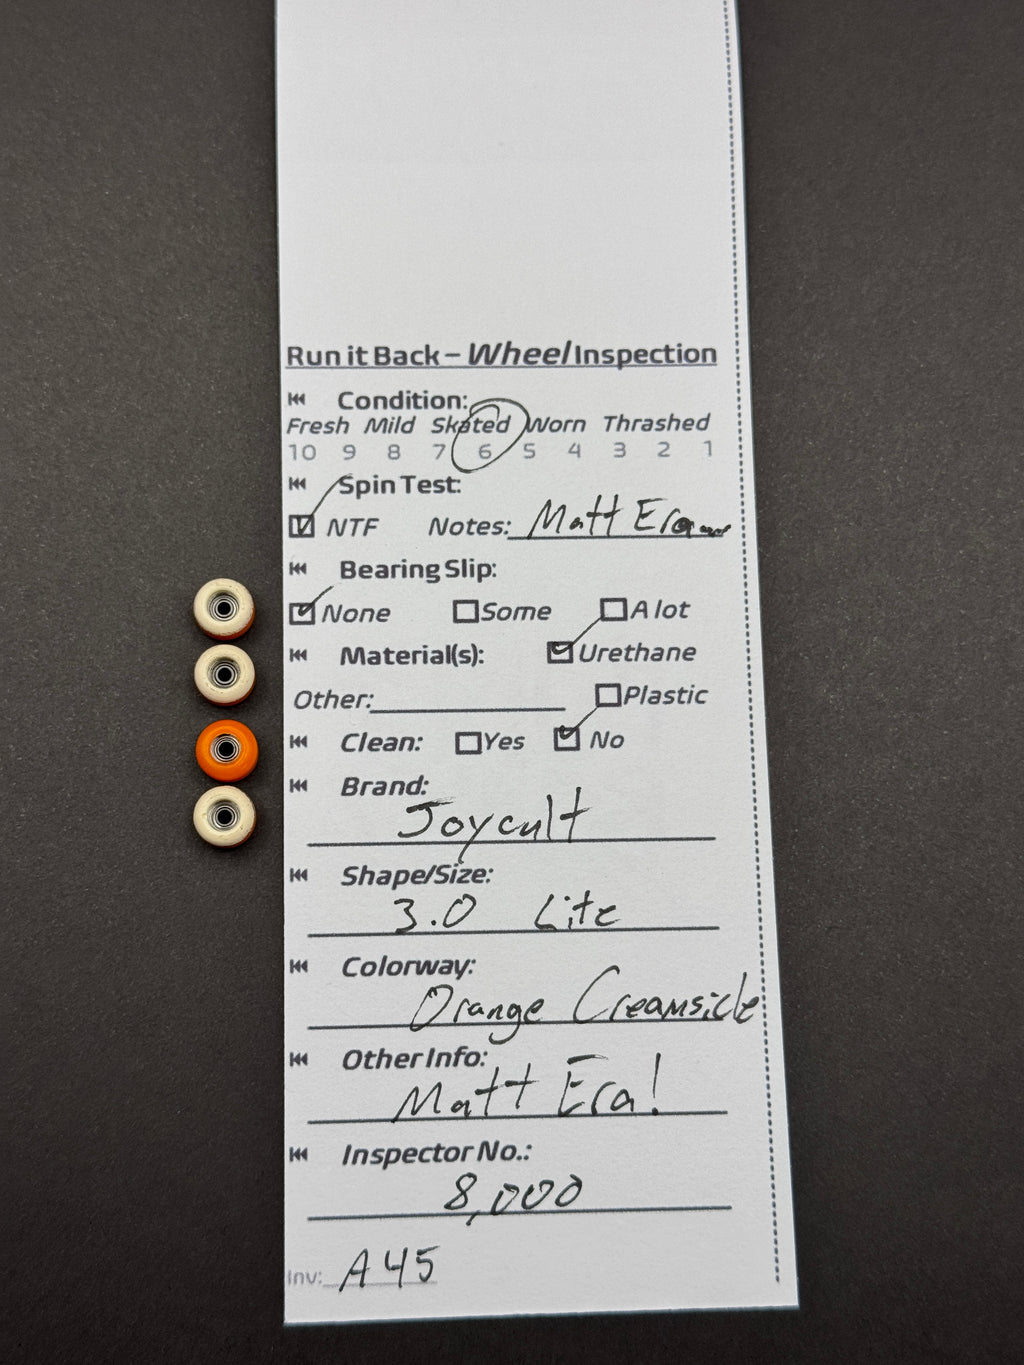 Run it Back – Wheel Inspection
Condition:
Fresh Mild Skated Worn Thrashed
10 9 8 7 6 5 4 3 2 1
Spin Test:
NTF Notes: Matt Era
Bearing Slip:
None Some A lot
Material(s): Urethane
Other: Plastic
Clean: Yes No
Brand:
Joycult
Shape/Size:
3.0 Lite
Colorway:
Orange Creamsicle
Other Info:
Matt Era!
Inspector No.:
8,000
Inv: A45